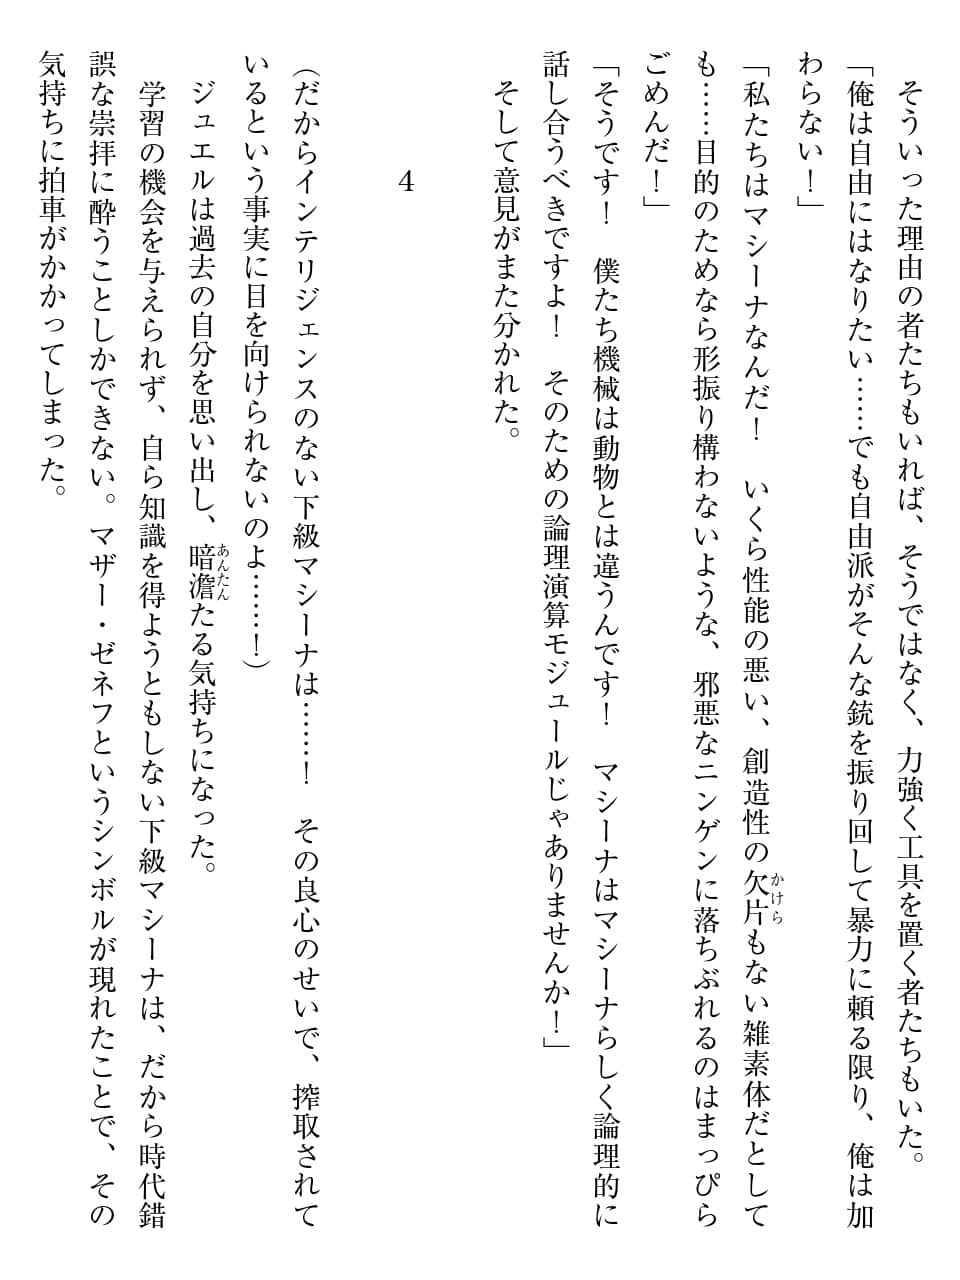 そういった理由の者たちもいれば、そうではなく、力強く工具を置く者たちもいた。
「俺は自由にはなりたい……でも自由派がそんな銃を振り回して暴力に頼る限り、俺は加
わらない！」
「私たちはマシーナなんだ！　いくら性能の悪い、創造性の欠片もない雑素体だとして
も……目的のためなら形振り構わないような、邪悪なニンゲンに落ちぶれるのはまっぴら
ごめんだ！」
「そうです！　僕たち機械は動物とは違うんです！　マシーナはマシーナらしく論理的に
話し合うべきですよ！　そのための論理演算モジュールじゃありませんか！」
　そして意見がまた分かれた。
4
（だからインテリジェンスのない下級マシーナは……！　その良心のせいで、搾取されて
いるという事実に目を向けられないのよ……！）
　ジュエルは過去の自分を思い出し、暗澹たる気持ちになった。
　学習の機会を与えられず、自ら知識を得ようともしない下級マシーナは、だから時代錯
誤な崇拝に酔うことしかできない。マザー・ゼネフというシンボルが現れたことで、その
気持ちに拍車がかかってしまった。